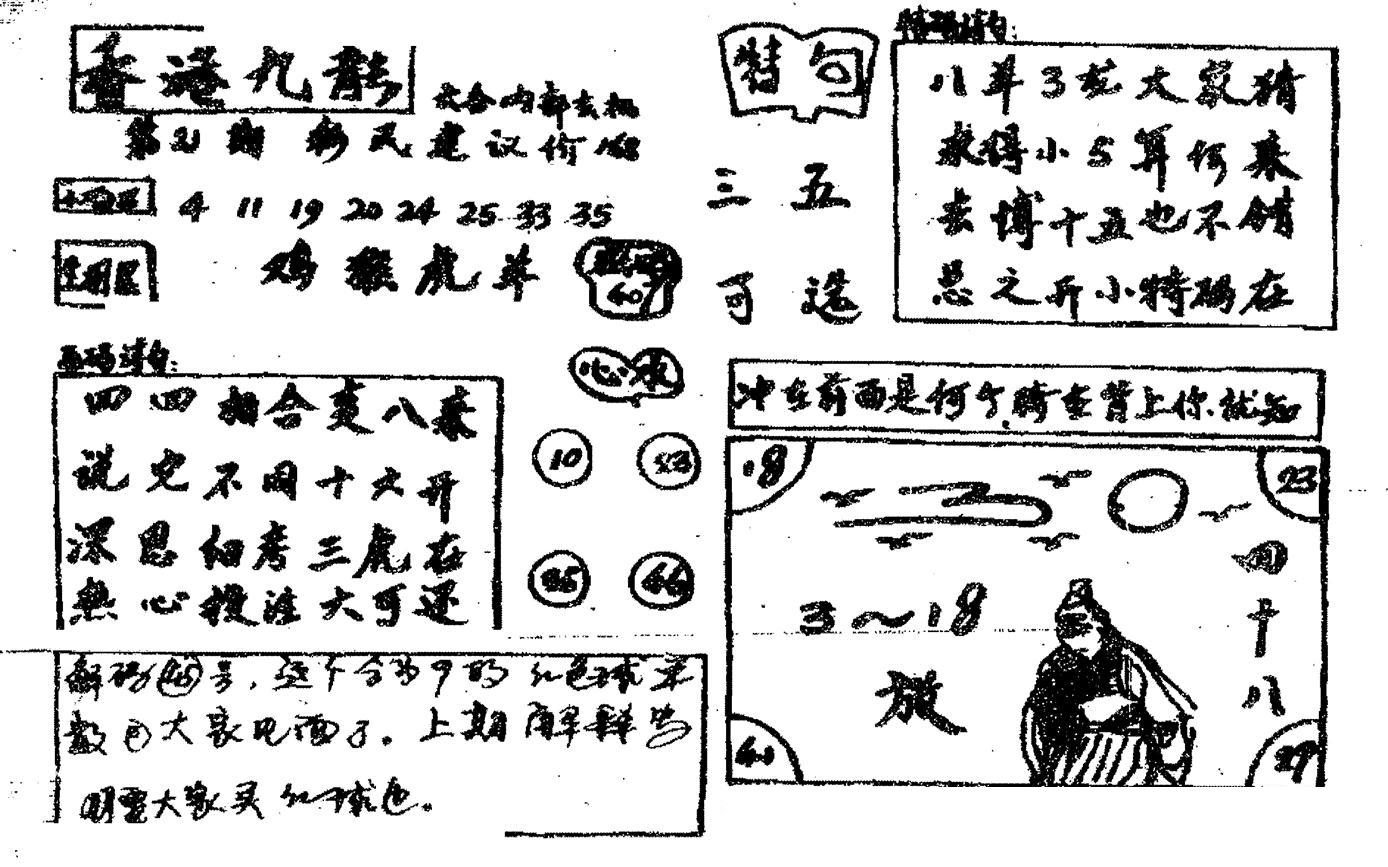 香港九龍
六合内部玄机
第21期 彩民建议价168
4 11 19 20 24 25 33 35
鸡 猴 虎 羊
特句
三五
可选
特码诗句:
八羊3龙大家猜
求得小5算何来
去博十五也不错
总之开小特码在
平码诗句:
四四相合变八来
说它不用十六开
深思细考三虎在
热心投注大可还
心水
10 23
35 46
冲在前面是何个骑在背上你就知
18 23
3～18
放
四十八
29
解码45号,这个合为9的红色球单
数已大家见面了。上期解释为
明显大家买红球色。